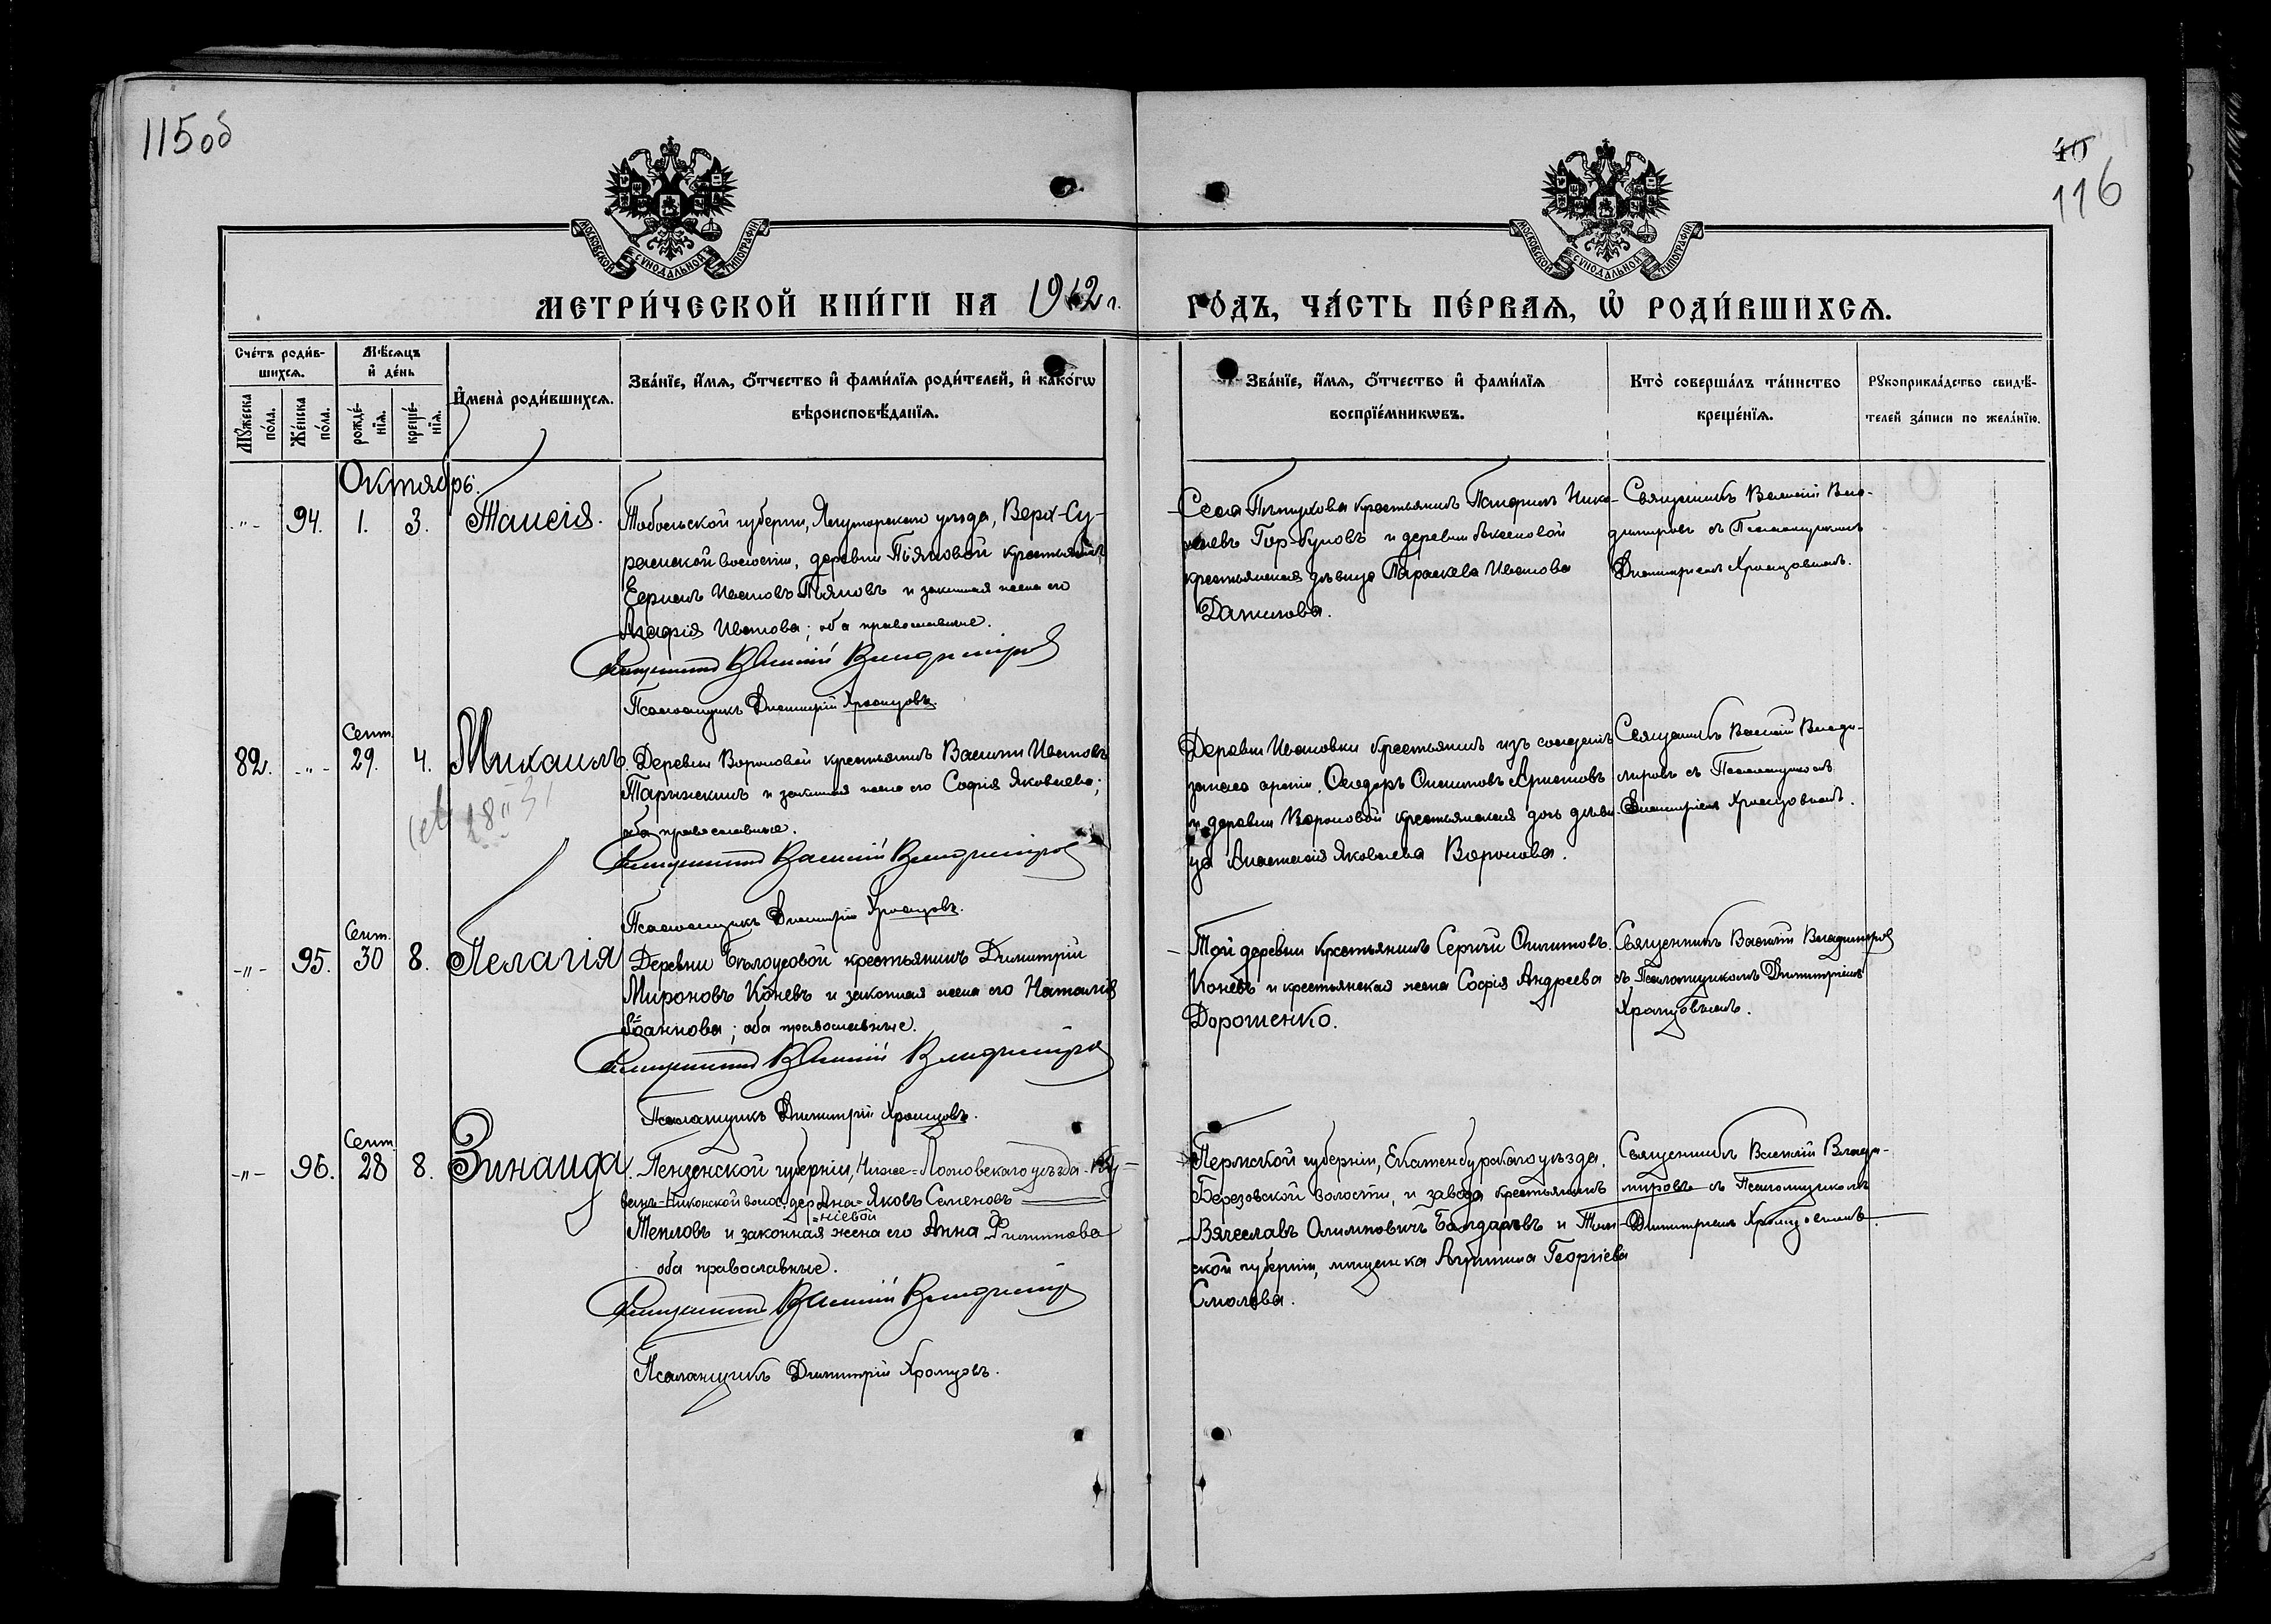 115об
40
116
МОСКОВСКОЙ СѴНОДАЛЬНОЙ ТИПОГРАФІИ.
МОСКОВСКОЙ СѴНОДАЛЬНОЙ ТИПОГРАФІИ.
МЕТРИ́ЧЕСКОЙ КНИ́ГИ НА 1912 г.
ГО́ДЪ, ЧА́СТЬ ПЕ́РВАѦ, Ѡ҆ РОДИ́ВШИХСѦ.
Сче́тъ роди́в-
шихсѧ.
Мѣ́сѧцъ
и҆ де́нь
Мꙋ́жеска по́ла.
Же́нска по́ла.
рожде́-
нїѧ.
креще́-
нїѧ.
И҆мена̀ роди́вшихсѧ.
Зва́нїе, и҆́мѧ, ѻ҆́тчество и҆ фамѝлїѧ роди́телей, и҆ како́гѡ
вѣроисповѣ́данїѧ.
Зва́нїе, и҆́мѧ, ѻ҆́тчество и҆ фамѝлїѧ
воспрїе́мникѡвъ.
Кто̀ соверша́лъ та́инство
креще́нїѧ.
Рꙋкоприкла́дство свидѣ́-
телей за́писи по жела́нїю.
Октябрь.
-"- 94. 1. 3. Таисія.
Тобольской губерніи, Ялуторскаго уѣзда, Верх-Су-
ерской волости, деревни крестьянинъ
Ивановъ и законная жена его
Агафія Иванова; оба православные.
Священникъ Василій Владиміровъ
Псаломщикъ Димитрій Хромцовъ.
Села крестьянинъ Нико-
лаевъ и деревни
крестьянская дѣвица Параскева Иванова
Данилова.
Священникъ Василій Вла-
диміровъ съ Псаломщикомъ
Димитріемъ Хромцовымъ.
Сент.
82. -"- 29. 4. Михаилъ.
Деревни Вороновой крестьянинъ Василій Ивановъ
и законная жена его Софія Яковлева;
оба православные.
Священникъ Василій Владиміровъ
Псаломщикъ Димитрій Хромцовъ.
Деревни Ивановки крестьянинъ изъ солдатъ
запаса арміи, Ѳеодоръ
и деревни Вороновой крестьянская дочь дѣви-
ца Анастасія Яковлева Воронова.
Священникъ Василій Влади-
міровъ съ Псаломщикомъ
Димитріемъ Хромцовымъ.
Сент.
-"- 95. 30 8. Пелагія
Деревни Бѣлоусовой крестьянинъ Димитрій
Мироновъ Коневъ и законная жена его Наталія
Іоаннова; оба православные.
Священникъ Василій Владиміровъ
Псаломщикъ Димитрій Хромцовъ.
Той деревни крестьянинъ Сергѣй
Коневъ и крестьянская жена Софія Андреева
Дорошенко.
Священникъ Василій Владиміровъ
съ Псаломщикомъ Димитріемъ
Хромцовымъ.
Сент.
-"- 96. 28 8. Зинаида.
Пензенской губерніи, Нижне-Ломовскаго уѣзда
волос. дер. Ана- Яковъ Семеновъ
ніевой
Тепловъ и законная жена его Анна Филиппова
оба православные.
Священникъ Василій Владиміровъ
Псаломщикъ Димитрій Хромцовъ.
Пермской губерніи, Екатенбурскаго уѣзда,
Березовской волости, и завода крестьянинъ
Вячеславъ Олимповичъ и Том-
ской губерніи, мѣщанка Агрипина Георгіева
Священникъ Василій Влади-
міровъ съ Псаломщикомъ
Димитріемъ Хромцовымъ.